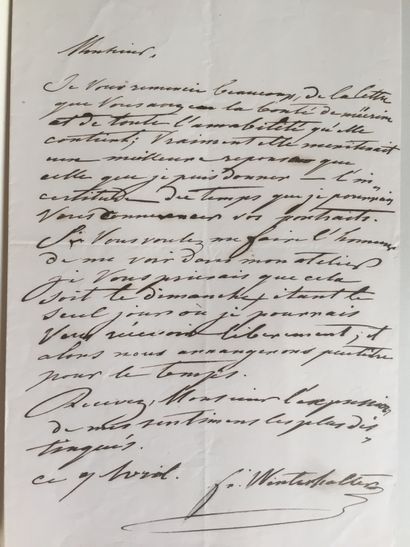 Monsieur,
Je vous remercie beaucoup, de la lettre
que vous avez eu la bonté de m'écrire
et de toute l'amabilité qu'elle
contient; vraiment elle meritait
une meilleure reponse que
celle que je puis donner — l'in„
certitude du temps que je pourrais
vous commencer vos portraits.
Si vous voulez me faire l'honneur
de me voir dans mon atelier
je vous prierais que cela
soit le dimanche, étant le
seul jours où je pourrais
vous récevoir librement; et
alors nous arrangerons peutêtre
pour le temps.
Recevez, Monsieur l'expression
de mes sentimens les plus dis„
tingués.
ce 9 Avril. fr. Winterhalter